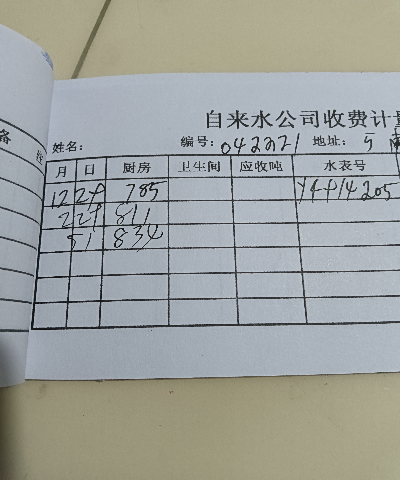 自来水公司收费计
姓名: 编号: 042221 地址:
月 日 厨房 卫生间 应收吨 水表号
12 29 785 Y4414205
2 29 811
5 1 834